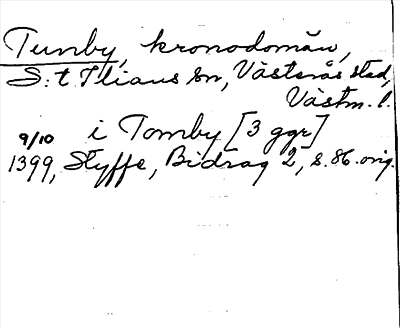 Tunby, kronodomän,
S:t Ilians sn, Västerås stad,
Västm. l.
9/10 i Tomby [3 ggr]
1399, Styffe, Bidrag 2, s. 86. orig.